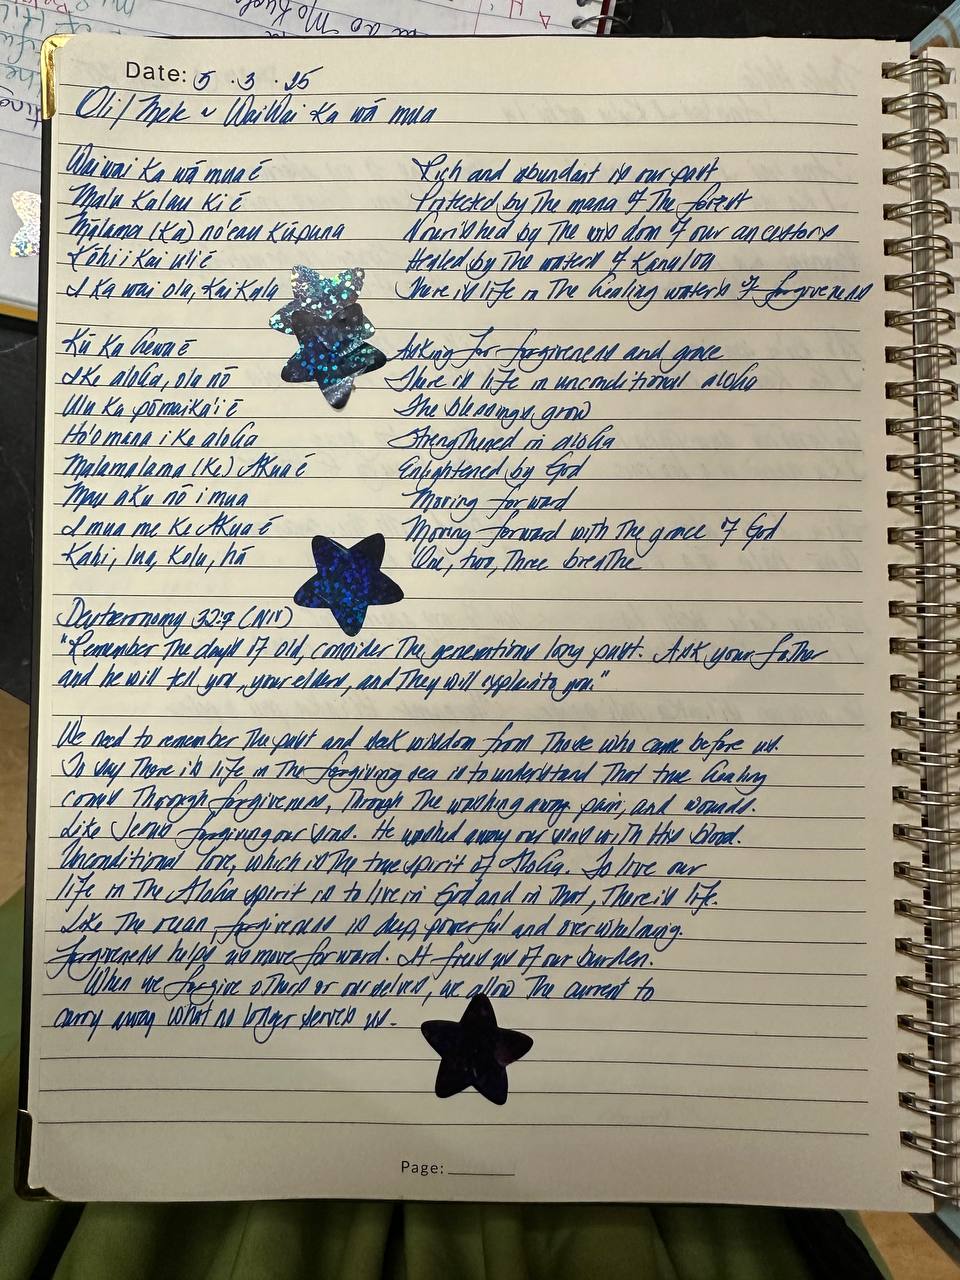 Date: 5 . 3 . 25
Oli/Mele ~ WaiWai Ka wā mua
Waiwai Ka wā mua ē Rich and abundant is our past
Malu Kalau Ki ē Protected by The mana of The forest
Mālama (Ka) no'eau Kūpuna Nourished by The wisdom of our ancestors
I Kai uli ē Healed by The waters of Kanaloa
I Ka wai ola, Kai Kala There is life in The healing waters of forgiveness
Kū Ka hewa ē Asking for forgiveness and grace
I Ke aloha, ola nō There is life in unconditional aloha
Ulu Ka pōmaika'i ē The blessings grow
Ho'omana i Ke aloha Strengthened in aloha
Malamalama (Ke) Akua ē Enlightened by God
May aku nō i mua Moving forward
I mua me Ke Akua ē Moving forward with The grace of God
Kahi, lua, Kolu, hā One, two, Three breathe
Deuteronomy 32:7 (NIV)
"Remember The days of old, consider The generations long past. Ask your father
and he will tell you, your elders, and They will explain to you."
We need to remember The past and seek wisdom from Those who came before us.
To say There is life in The forgiving sea is to understand That true healing
comes Through forgiveness, Through The washing away pain, and wounds.
Like Jesus forgiving our sins. He washed away our sins with His blood.
Unconditional love, which is The true spirit of Aloha. To live our
life in The Aloha spirit is to live in God and in That, There is life.
Like The ocean forgiveness is deep, powerful and overwhelming.
Forgiveness helps us move forward. It frees us of our burden.
When we forgive others or ourselves, we allow The current to
carry away what no longer serves us.
Page: